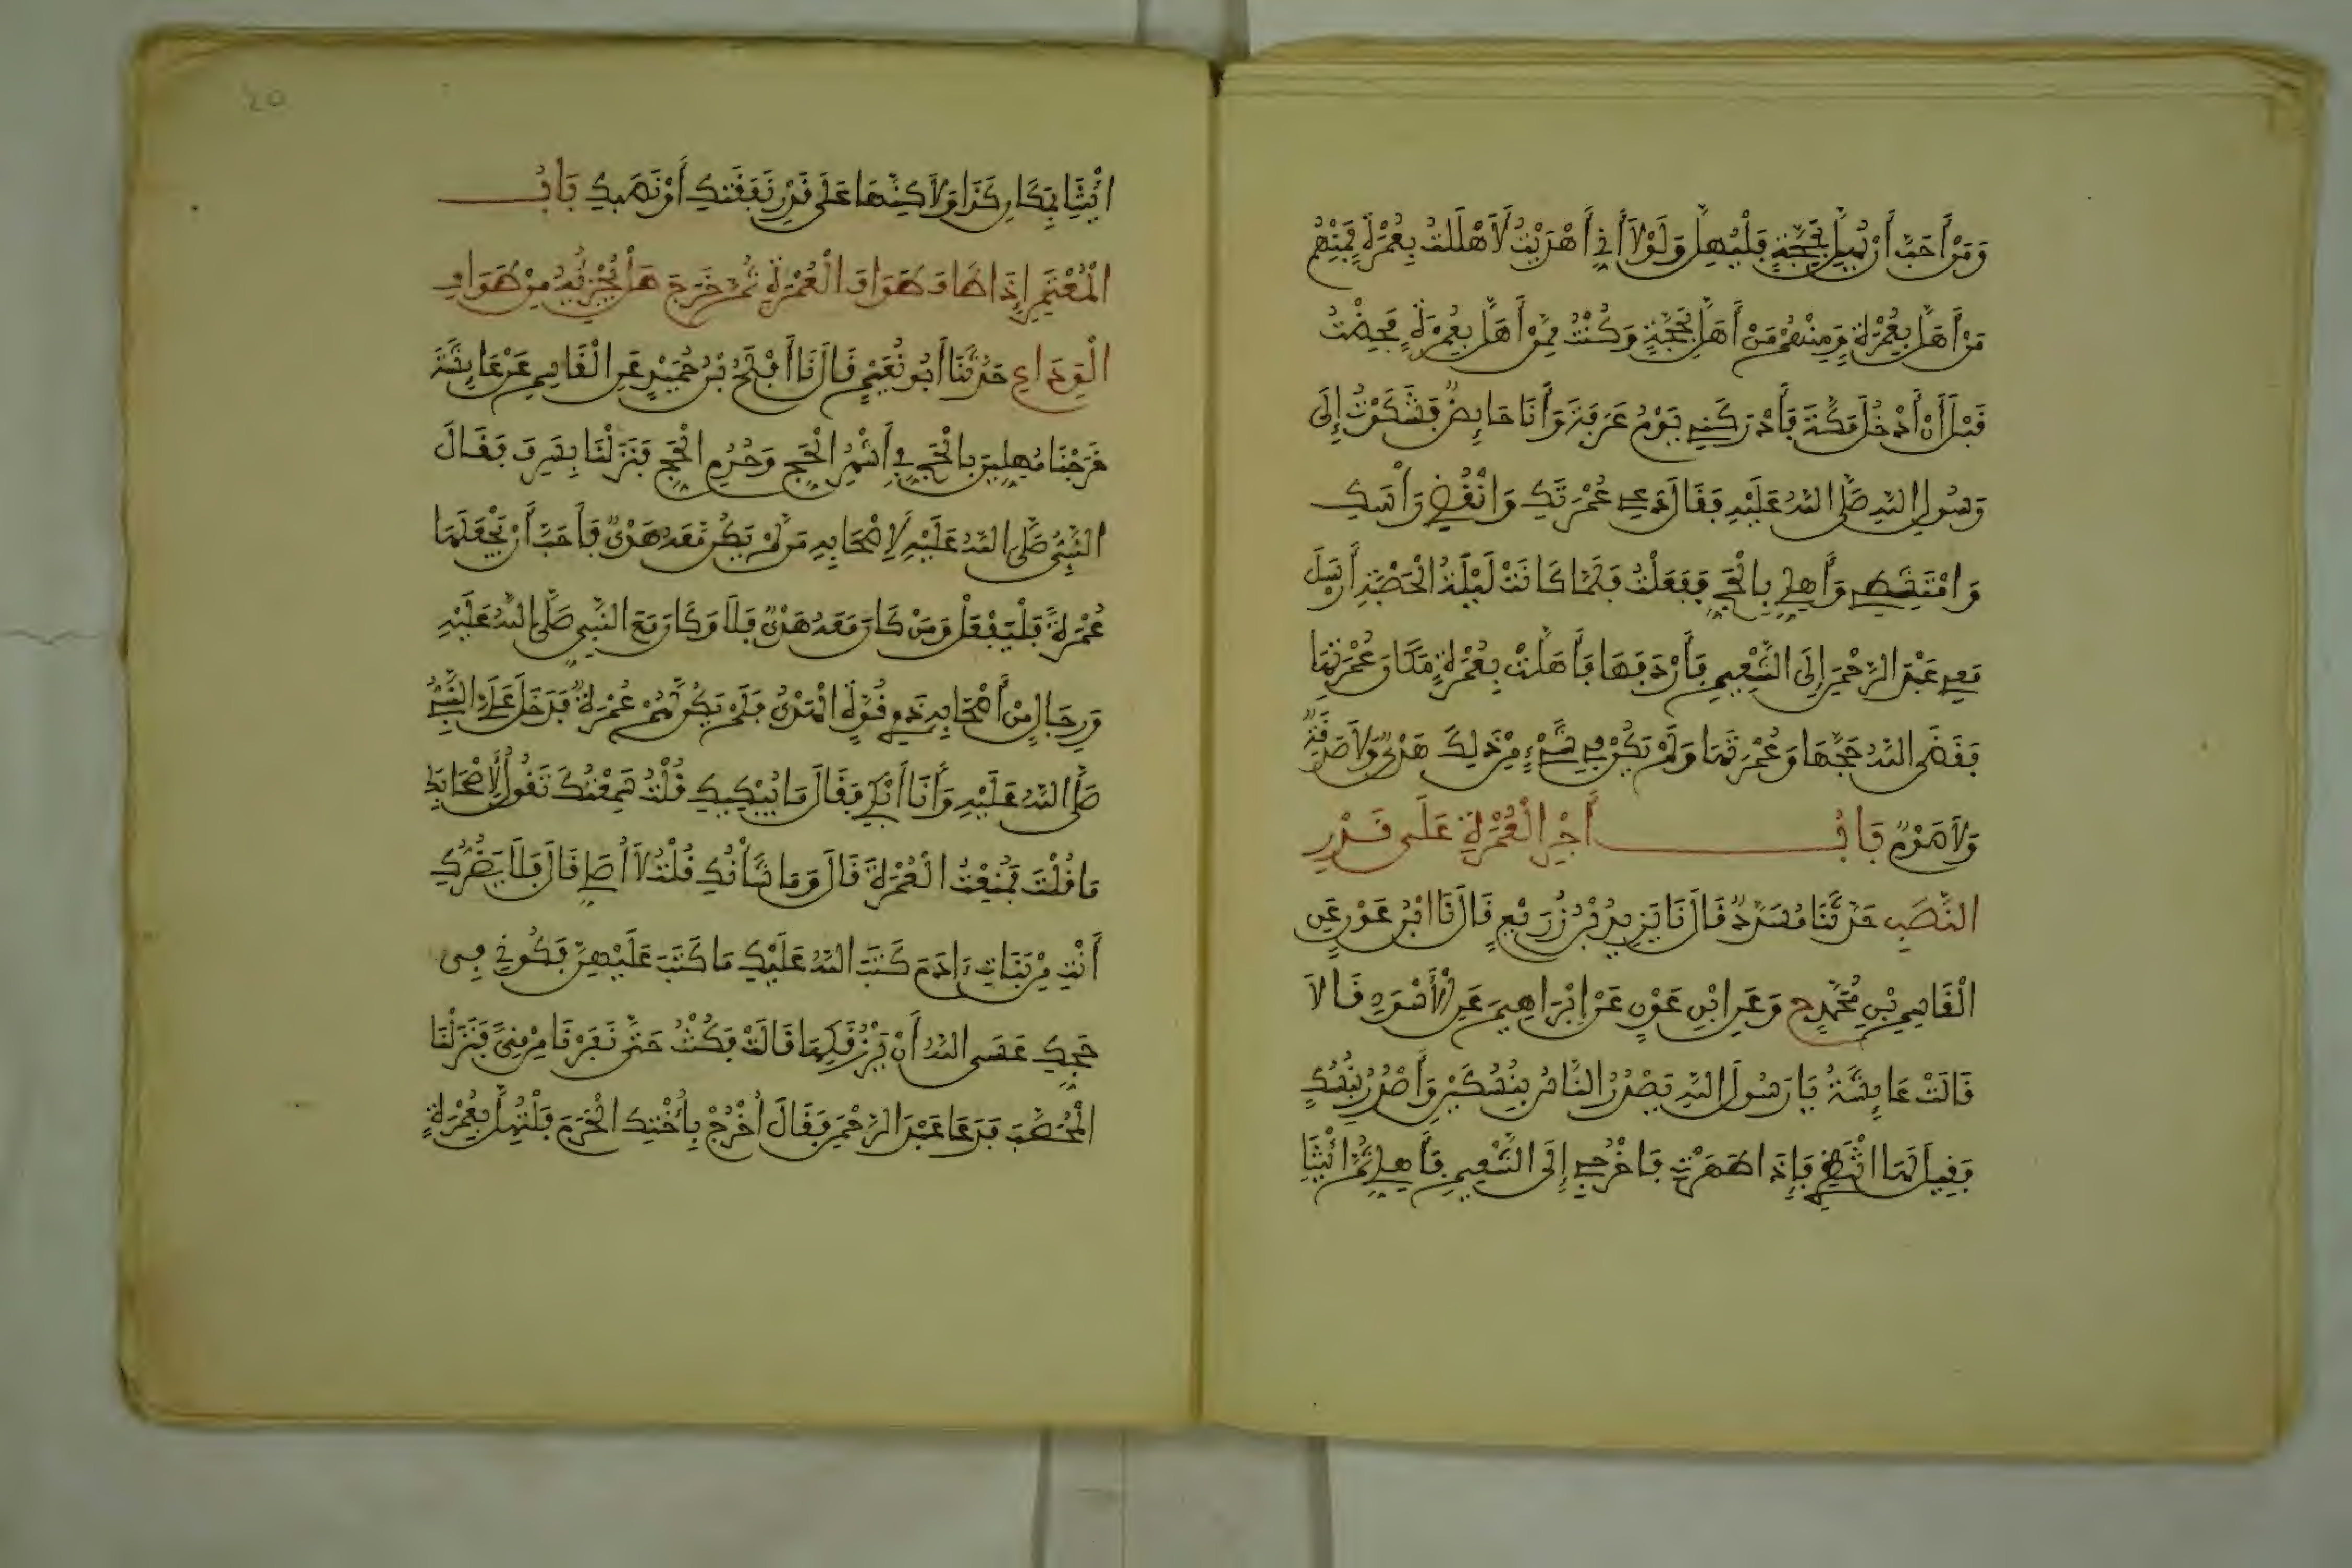 وَمَنْ أَحَبَّ أَنْ يُهِلَّ بِحَجَّةٍ فَلْيُهِلَّ وَلَوْلَا أَنِّي أَهْدَيْتُ لَأَهْلَلْتُ بِعُمْرَةٍ فَمِنْهُم
مَنْ أَهَلَّ بِعُمْرَةٍ وَمِنْهُمْ مَنْ أَهَلَّ بِحَجَّةٍ وَكُنْتُ مِمَّنْ أَهَلَّ بِعُمْرَةٍ فَحِضْتُ
قَبْلَ أَنْ أَدْخُلَ مَكَّةَ فَأَدْرَكَنِي يَوْمُ عَرَفَةَ وَأَنَا حَائِضٌ فَشَكَوْتُ إِلَى
رَسُولِ اللهِ صَلَّى اللهُ عَلَيْهِ فَقَالَ دَعِي عُمْرَتَكِ وَانْقُضِي رَأْسَكِ
وَامْتَشِطِي وَأَهِلِّي بِالْحَجِّ فَفَعَلْتُ فَلَمَّا كَانَتْ لَيْلَةُ الْحَصْبَةِ أَرْسَلَ
مَعِي عَبْدَ الرَّحْمَنِ إِلَى التَّنْعِيمِ فَأَرْدَفَهَا فَأَهَلَّتْ بِعُمْرَةٍ مَكَانَ عُمْرَتِهَا
فَقَضَى اللهُ حَجَّهَا وَعُمْرَتَهَا وَلَمْ يَكُنْ فِي شَيْءٍ مِنْ ذَلِكَ هَدْيٌ وَلَا صَدَقَةٌ
وَلَا صَوْمٌ بَابُ أَجْرِ الْعُمْرَةِ عَلَى قَدْرِ
النَّصَبِ حَدَّثَنَا مُسَدَّدٌ قَالَ نَا يَزِيدُ بْنُ زُرَيْعٍ قَالَ نَا ابْنُ عَوْنٍ عَنِ
الْقَاسِمِ بْنِ مُحَمَّدٍ ح وَعَنِ ابْنِ عَوْنٍ عَنْ إِبْرَاهِيمَ عَنِ الْأَسْوَدِ قَالَا
قَالَتْ عَائِشَةُ يَا رَسُولَ اللهِ يَصْدُرُ النَّاسُ بِنُسُكَيْنِ وَأَصْدُرُ بِنُسُكٍ
فَقِيلَ لَهَا انْتَظِرِي فَإِذَا طَهَرْتِ فَاخْرُجِي إِلَى التَّنْعِيمِ فَأَهِلِّي ثُمَّ ائْتِيَا
ائْتِيَا بِمَكَانِ كَذَا وَلَاكِنَّهَا عَلَى قَدْرِ نَفَقَتِكِ أَوْ نَصَبِكِ بَابُ
الْمُعْتَمِرِ إِذَا طَافَ طَوَافَ الْعُمْرَةِ ثُمَّ خَرَجَ هَلْ يُجْزِئُهُ مِنْ طَوَافِ
الْوَدَاعِ حَدَّثَنَا أَبُو نُعَيْمٍ قَالَ نَا أَفْلَحُ بْنُ حُمَيْدٍ عَنِ الْقَاسِمِ عَنْ عَائِشَةَ
خَرَجْنَا مُهِلِّينَ بِالْحَجِّ فِي أَشْهُرِ الْحَجِّ وَحُرُمِ الْحَجِّ فَنَزَلْنَا بِسَرِفَ فَقَالَ
النَّبِيُّ صَلَّى اللهُ عَلَيْهِ لِأَصْحَابِهِ مَنْ لَمْ يَكُنْ مَعَهُ هَدْيٌ فَأَحَبَّ أَنْ يَجْعَلَهَا
عُمْرَةً فَلْيَفْعَلْ وَمَنْ كَانَ مَعَهُ هَدْيٌ فَلَا وَكَانَ مَعَ النَّبِيِّ صَلَّى اللهُ عَلَيْهِ
وَرِجَالٍ مِنْ أَصْحَابِهِ ذَوِي قُوَّةٍ الْهَدْيُ فَلَمْ تَكُنْ لَهُمْ عُمْرَةٌ فَدَخَلَ عَلَيَّ النَّبِيُّ
صَلَّى اللهُ عَلَيْهِ وَأَنَا أَبْكِي فَقَالَ مَا يُبْكِيكِ قُلْتُ سَمِعْتُكَ تَقُولُ لِأَصْحَابِكَ
مَا قُلْتَ فَمُنِعْتُ الْعُمْرَةَ قَالَ وَمَا شَأْنُكِ قُلْتُ لَا أُصَلِّي قَالَ فَلَا يَضُرُّكِ
أَنْتِ مِنْ بَنَاتِ ءَادَمَ كَتَبَ اللهُ عَلَيْكِ مَا كَتَبَ عَلَيْهِنَّ فَكُونِي فِي
حَجِّكِ عَسَى اللهُ أَنْ يَرْزُقَكِهَا قَالَتْ فَكُنْتُ حَتَّى نَفَرْنَا مِنْ مِنًى فَنَزَلْنَا
الْمُحَصَّبَ فَدَعَا عَبْدَ الرَّحْمَنِ فَقَالَ اخْرُجْ بِأُخْتِكَ الْحَرَمَ فَلْتُهِلَّ بِعُمْرَةٍ